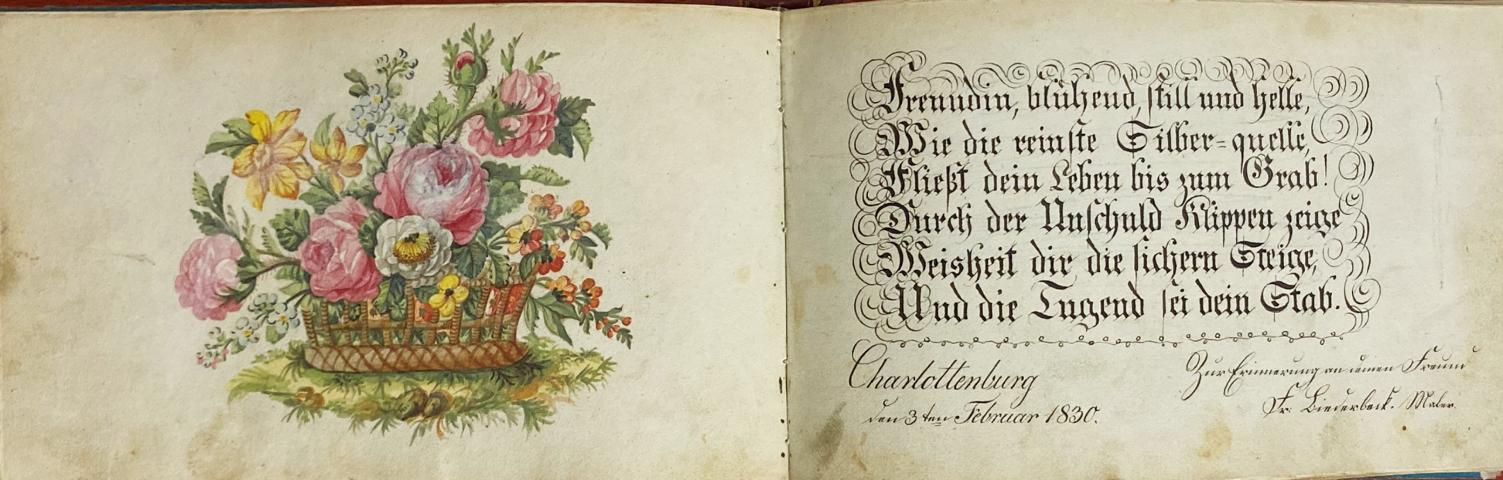 Freundin, blühend, still und helle,
Wie die reinste Silber=quelle,
Fließt dein Leben bis zum Grab!
Durch der Unschuld Klippen zeige
Weisheit dir die sichern Steige,
Und die Tugend sei dein Stab.
Charlottenburg
den 3ten Februar 1830.
Zur Erinnerung an deinen Freund
Fr. Biederbeck. Maler.